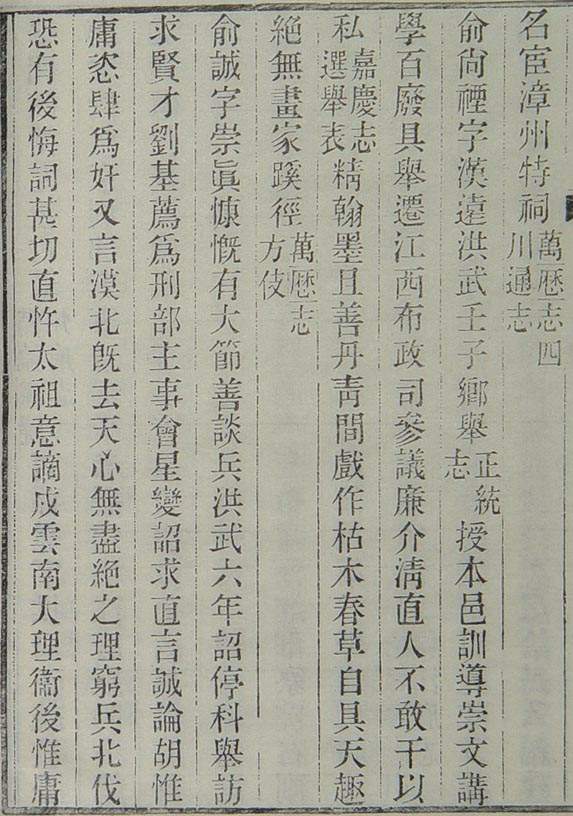 名宦漳州特祠萬厯志四川通志
俞尙禋字漢遠洪武壬子鄕舉正統志授本邑訓導崇文講
學百廢具舉遷江西布政司參議廉介清直人不敢干以
私嘉慶志選舉表精翰墨且善丹靑間戲作枯木春草自具天趣
絶無畫家蹊徑萬厯志方伎
俞誠字崇眞慷慨有大節善談兵洪武六年詔停科舉訪
求賢才劉基薦爲刑部主事會星變詔求直言誠論胡惟
庸恣肆爲奸又言漠北旣去天心無盡絶之理窮兵北伐
恐有後悔詞甚切直忤太祖意謫戍雲南大理衞後惟庸